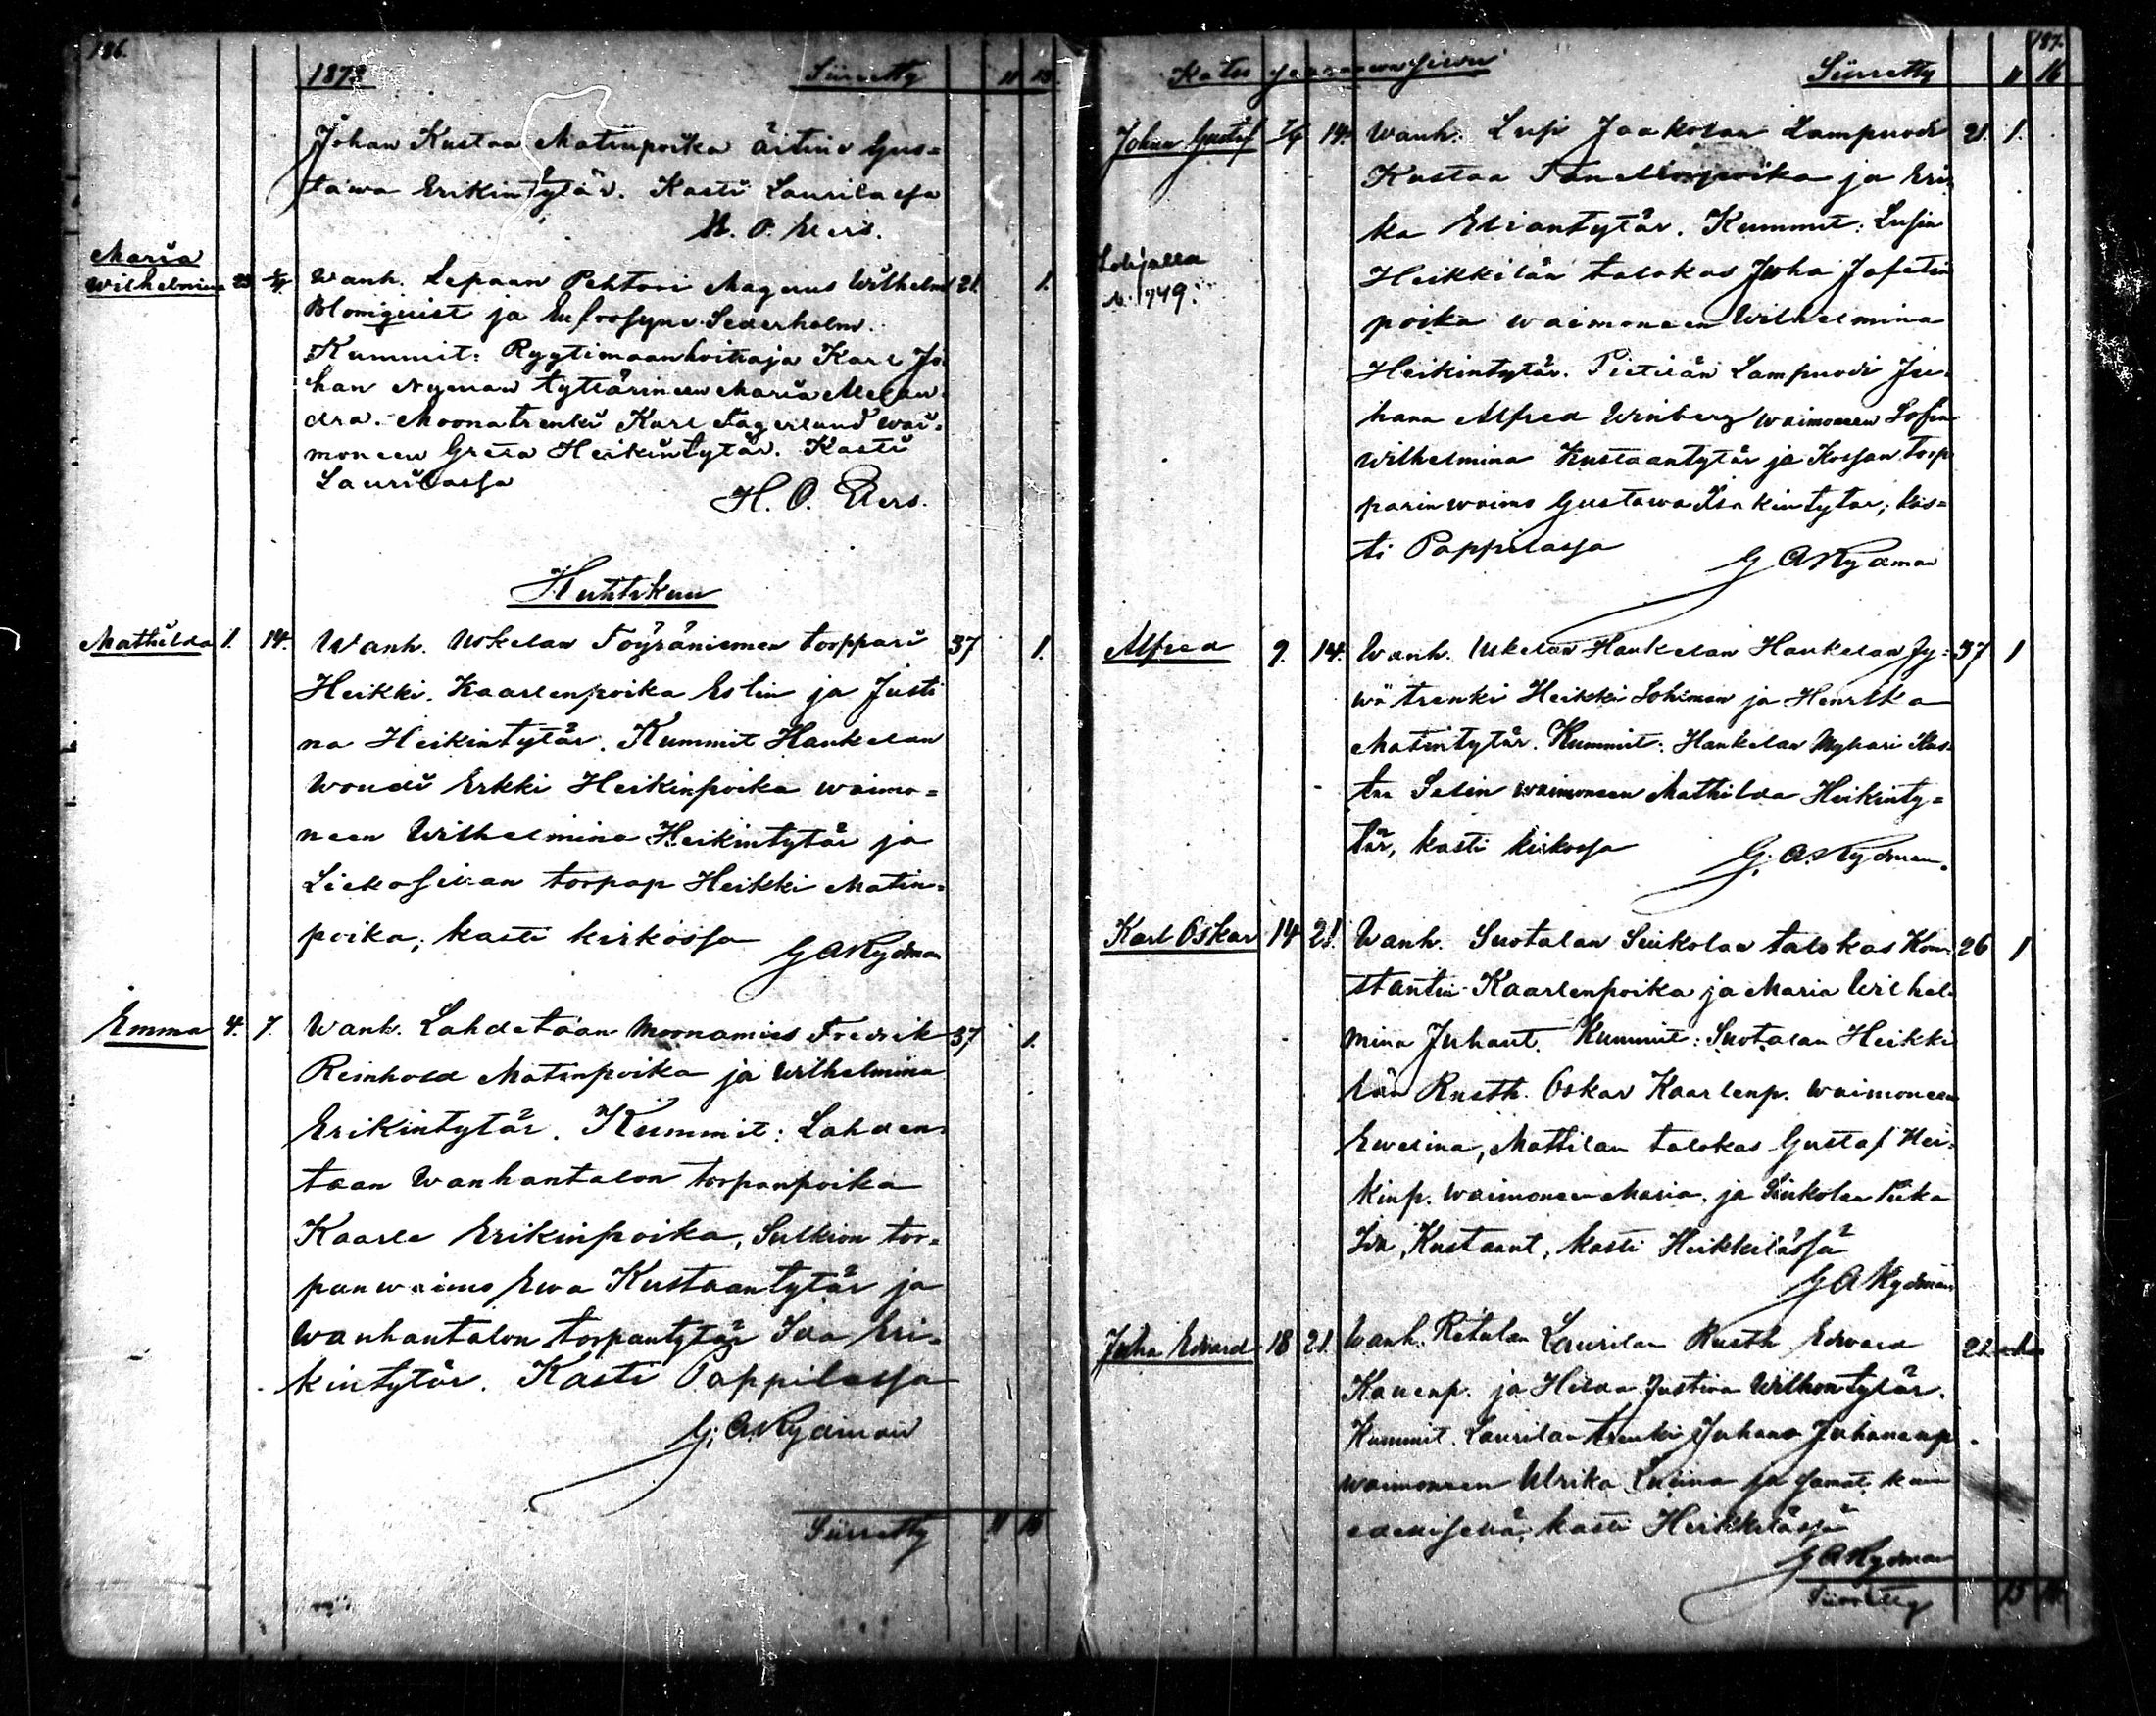 186.
1878 Siirretty 11 13.
Johan Kustaa Matinpoika äitine Gus=
tawa Erikintytär. Kasti Laurilassa
H. O. Elers.
Maria
Wilhelmina 23 Wanh. Lepaan Pehtori Magnus Wilhelm 21. 1.
Blomquist ja Eufrosyne Sederholm.
Kummit: Ryytimaanhoitaja Karl Jo
han Nyman tyttärineen Maria Alexan
dra. Moonatrenki Karl Fagerlund wai=
moneen Greta Heikintytär. Kasti
Laurilassa
H. O. Elers.
Huhtikuu
Mathilda 1. 14. Wanh. Uskelan Töyräniemen torppari 37 1.
Heikki Kaarlenpoika Eslin ja Justi
na Heikintytär. Kummit Haukelan
Woudi Erkki Heikinpoika waimo=
neen Wilhelmina Heikintytär ja
torpap Heikki Matin=
poika; kasti kirkossa G A Rydman
Emma 4. 7. Wanh. Lahdetaan Moonamies Fredrik 37 1.
Reinhold Matinpoika ja Wilhelmina
Erikintytär. Kummit: Lahden
taan Wanhantalon torpanpoika
Kaarle Erikinpoika, Sulkion tor=
panwaimo Ewa Kustaantytär ja
Wanhantalon torpantytär Ida Eri=
kintytär. Kasti Pappilassa
G. A Rydman
Siirretty 11 16
187.
Katso seuraawa siwu Siirretty 11 16
Johan Gustaf 14. Wanh. Jaakolan Lampuodi 21. 1.
Kustaa ja Eri=
ka Eliantytär. Kummit:
Lohjalla
N:o 749.
Heikkilän talokas Juha Jafetin
poika waimoneen Wilhelmina
Heikintytär. Pietilän Lampuodi Ju=
hana Alfred Winberg waimoneen Sofia
Wilhelmina Kustaantytär ja torp
parinwaimo Gustawa Isakintytar; kas=
ti Pappilassa
G A Rydman
Alfred 9. 14. Wanh. Uskelan Haukelan Haukelan Jy= 37 1
wä trenki Heikki ja Henrika
Matintytär. Kummit: Haukelan Kus=
taa Selin waimoneen Mathilda Heikinty=
tär, kasti kirkossa G. A. Rydman.
Karl Oskar 14 21. Wanh. Suotalan talokas Kon= 26 1
stantin Kaarlenpoika ja Maria Wilhel
mina Juhant. Kummit: Suotalan Heikki
län Rusth. Oskar Kaarlenp. waimoneen
Ewelina, Mattilan talokas Gustaf Hei=
kinp. waimoneen Maria, ja Piika
Ida Kustaant, kasti Heikkilässä
G A Rydman
Juha Edvard 18 21. Wanh. Retulan Laurilan Rusth Edvard 22
ja Hilda Justina Wilhontytär.
Kummit. Laurilan trenki Juhana Juhananp
waimoneen Ulrika ja samat kuin
edellisellä, kasti Heikkilässä
G A Rydman
Siirretty 15 16